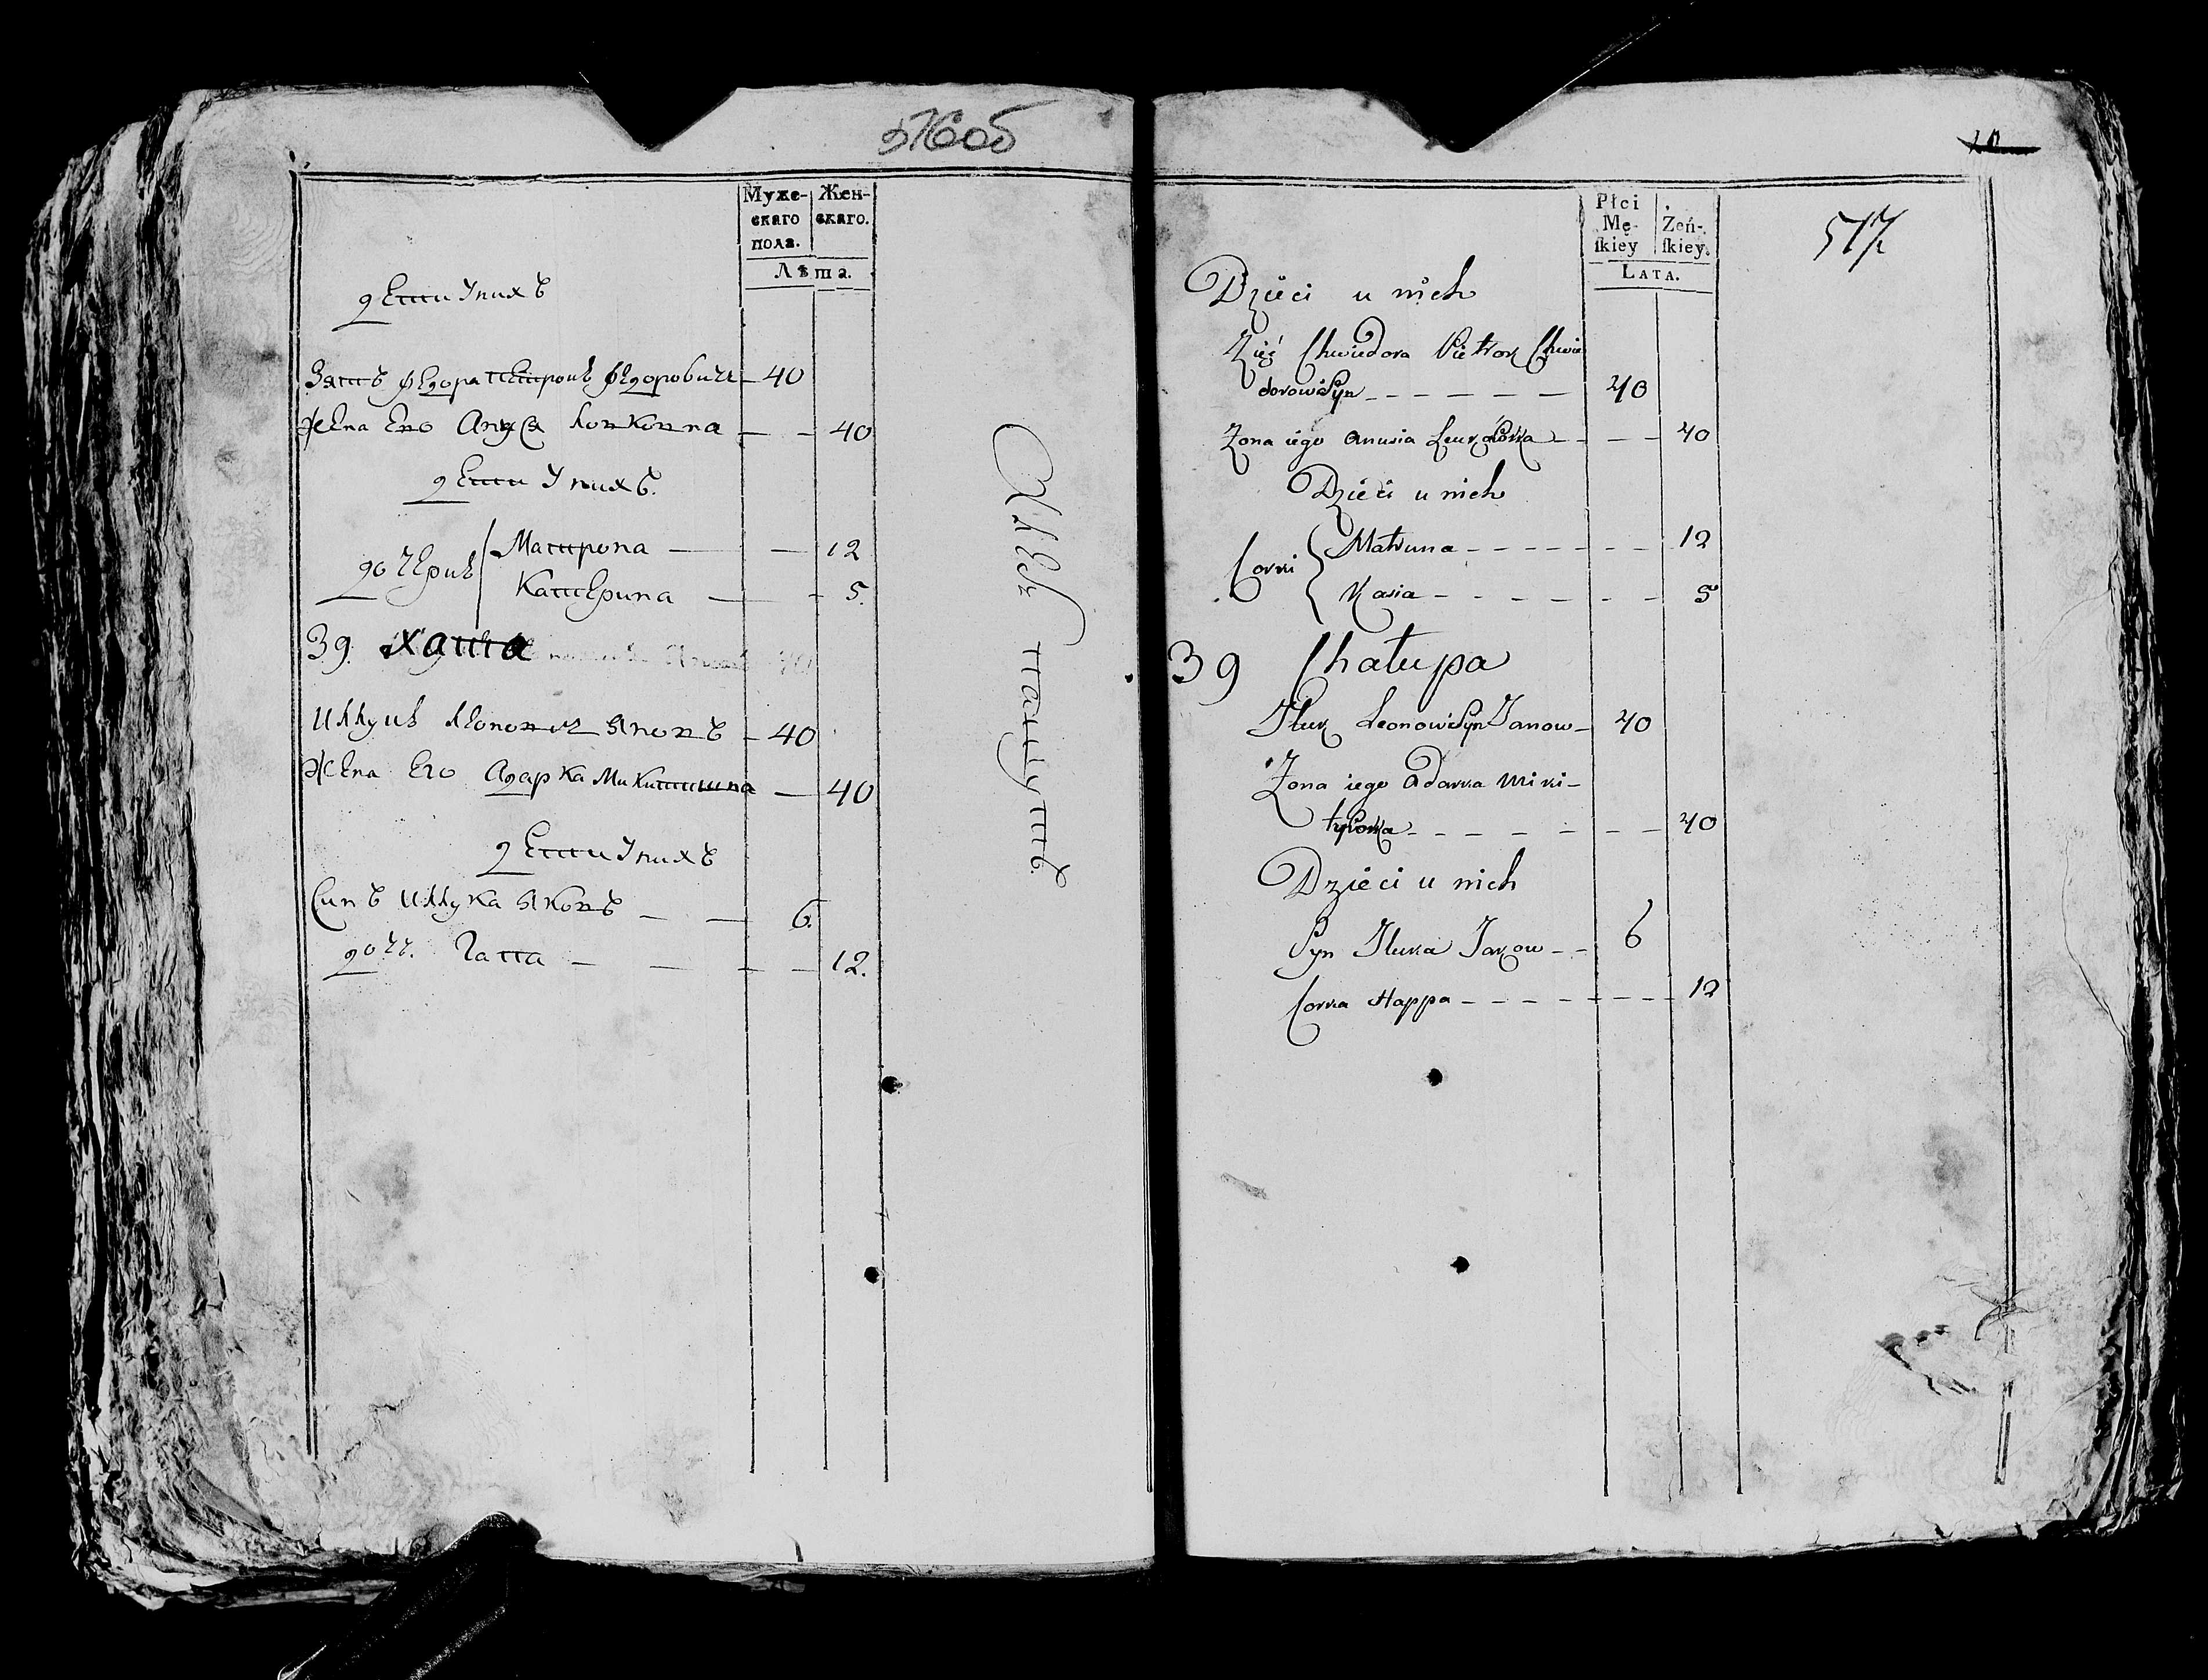 516об
Муже-
скаго
пола.
Жен-
скаго.
Лѣта.
дети У нихъ
Зять федора петроиь федоровичь 40
жена его Ануся 40
дети У нихъ.
дочериь Матрона 12
Катерина 5.
39. хата
Иллуиь Яновъ 40
жена Его Адарка Микитишна 40
дети У нихъ
Синъ Иллука Яковъ 6.
дочь. Гапа 12.
517
Płci
Mę-
ſkiey
Żeń-
ſkiey.
LATA.
Dzieci u nich
Zięć Chwiedora Pietron Chwie
dorowiSyn 40
Żona iego Anusia 40
Dzieci u nich
Corki Matruna 12
Kasia 5
39 Chałupa
Leonowi Syn Janow 40
Żona iego Adarka Miki-
tyCorka 40
Dzieci u nich
Syn Iluka Jakow 6
Corka Happa 12